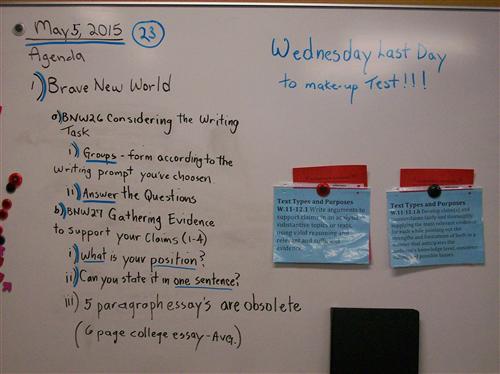 May 5, 2015 23
Agenda
1) Brave New World
a) BNW26 Considering the Writing
Task
i) Groups - form according to the
writing prompt you've choosen.
ii) Answer the Questions
b) BNW27 Gathering Evidence
to support your Claims (1-4)
i) What is your position?
ii) Can you state it in one sentence?
iii) 5 paragraph essay's are obsolete
(6 page college essay - Avg.)
Wednesday Last Day
to make-up Test!!!
Text Types and Purposes
W.11-12.1 Write arguments to
support claims in an analysis of
substantive topics or texts,
using valid reasoning and
relevant and sufficient
evidence.
Text Types and Purposes
W.11-12.1.b Develop claim(s) and
counterclaims fairly and thoroughly,
supplying the most relevant evidence
for each while pointing out the
strengths and limitations of both in a
manner that anticipates the
audience's knowledge level, concerns,
values, and possible biases.